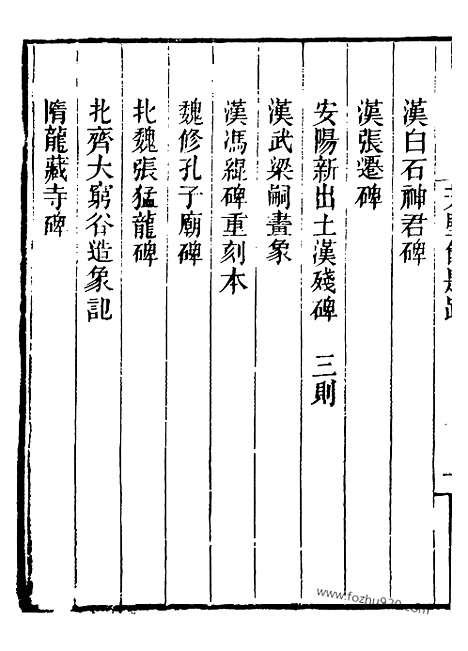 漢白石神君碑
漢張遷碑
安陽新出土漢殘碑　三則
漢武梁嗣畫象
漢馮緄碑重刻本
魏修孔子廟碑
北魏張猛龍碑
北齊大窮谷造象記
隋龍藏寺碑
www.fozhu920.com